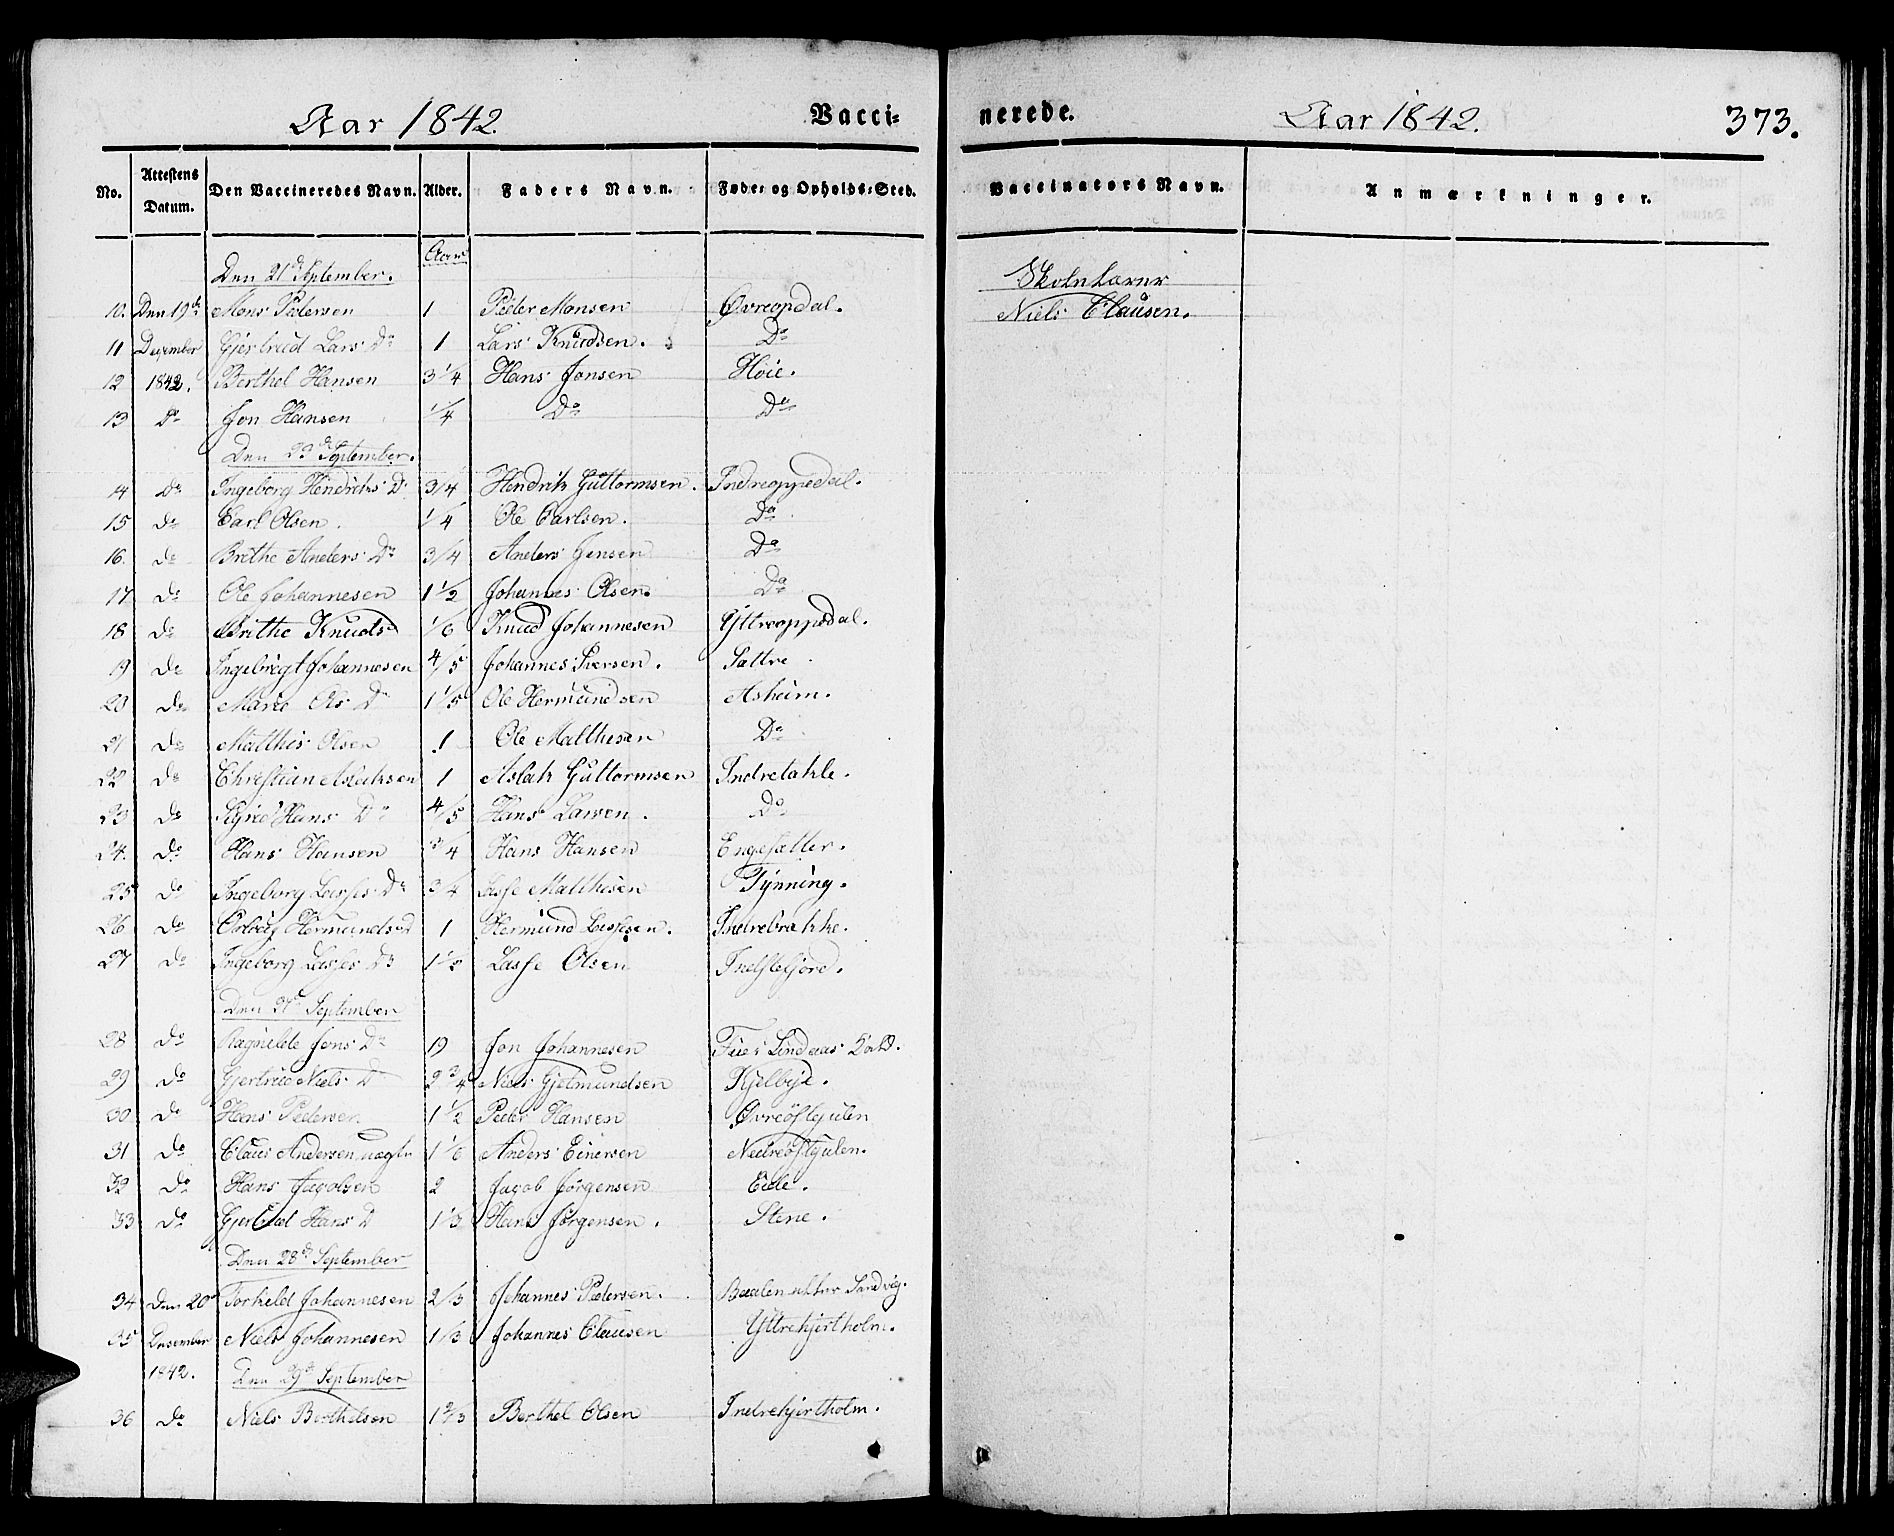 Aar 1842. Vacci= nerede. Aar 1842. 373.
No. Attestens Datum. Den Vaccineredes Navn. Alder. Faders Navn. Føde= og Opholds=Sted. Vaccinators Navn. Anmærkninger.
Aar
Den 21de September. Skolelærer
10. Den 19de Mons Pedersen 1 Peder Monsen Øvreopdal. Niels Clausen.
11 December Gjertrud Lars Dr 1 Lars Knudsen. Do
12 1842. Berthel Hansen 3 1/4 Hans Jonsen Høie.
13 Do Jon Hansen 1/4 Do Do
Den September.
14 Do Ingeborg Hendriks D 3/4 Hendrik Guttormsen. Indreoppedal.
15 do Carl Olsen. 1/4 Ole Carlsen. Do
16. do Brithe Anders Dr 3/4 Anders Jensen Do
17 do Ole Johannesen 1 1/2 Johannes Olsen. Do
18 do Brithe Knuds D 1/6 Knud Johannesen Yttreoppedal.
19 do Ingebrigt Johannesen 4/5 Johannes Iversen. Sættre
20 do Marie Ols Dr 1 1/5 Ole Hermundsen Asheim.
21 do Matthis Olsen 1 Ole Matthesen Do
22 do Christian Aslaksen 1 Aslak Guttormsen Indretakle.
23 do Sigrid Hans Dr 4/5 Hans Larsen. Do
24. do Hans Hansen 3/4 Hans Hansen Engesætter.
25 do Ingeborg Lasses Dr 3/4 Lasse Matthisen Tynning.
26 do Hermunds D 1 Hermund Lassesen. Indrebrække.
27 do Ingeborg Lasses Dr 1 1/2 Lasse Olsen
Den 27de September
28 do Ragnilde Jons Dr 19 Jon Johannesen Lindaas
29 do Gjertrud Niels D 2 3/4 Niels Gjelmundsen Kjelbye.
30 do Hans Pedersen 1 1/2 Peder Hansen Øvreöstgulen
31 do Claus Andersen uægte 1 1/6 Anders Einersen Nedreöstgulen.
32 do Hans Jacobsen 2 Jacob Jörgensen Eide.
33 do Gjertrud Hans D 1 1/3 Hans Jörgensen. Stene.
Den 28de September
34 Den 20de Torkeld Johannesen 2/3 Johannes Pedersen. Sandvig.
35 December Niels Johannesen 1/3 Johannes Clausen Yttrehjertholm.
1842. Den 29de September
36 do Niels Berthelsen 1 2/3 Berthel Olsen Indrehjertholm.